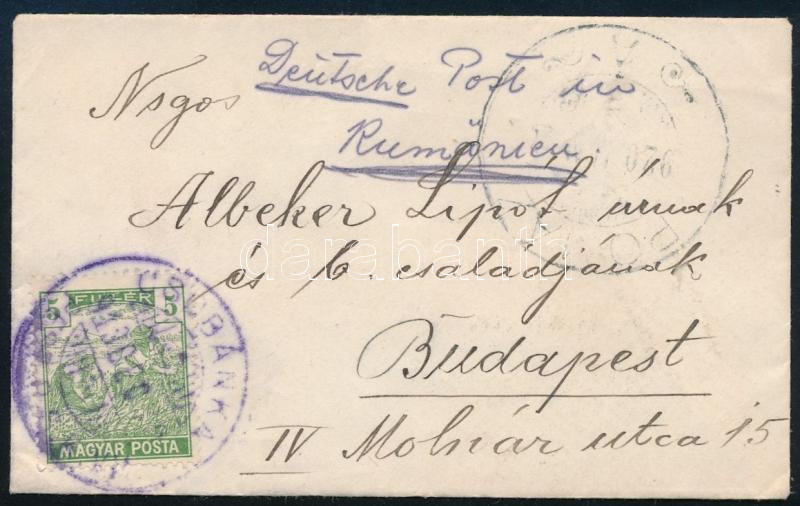 Deutsche Post in
Rumänien.
Nsgos
Albeker Lipót úrnak
és b. családjának
Budapest
IV Molnár utca 15
5 FILLÉR 5
MAGYAR POSTA
076
darabanth